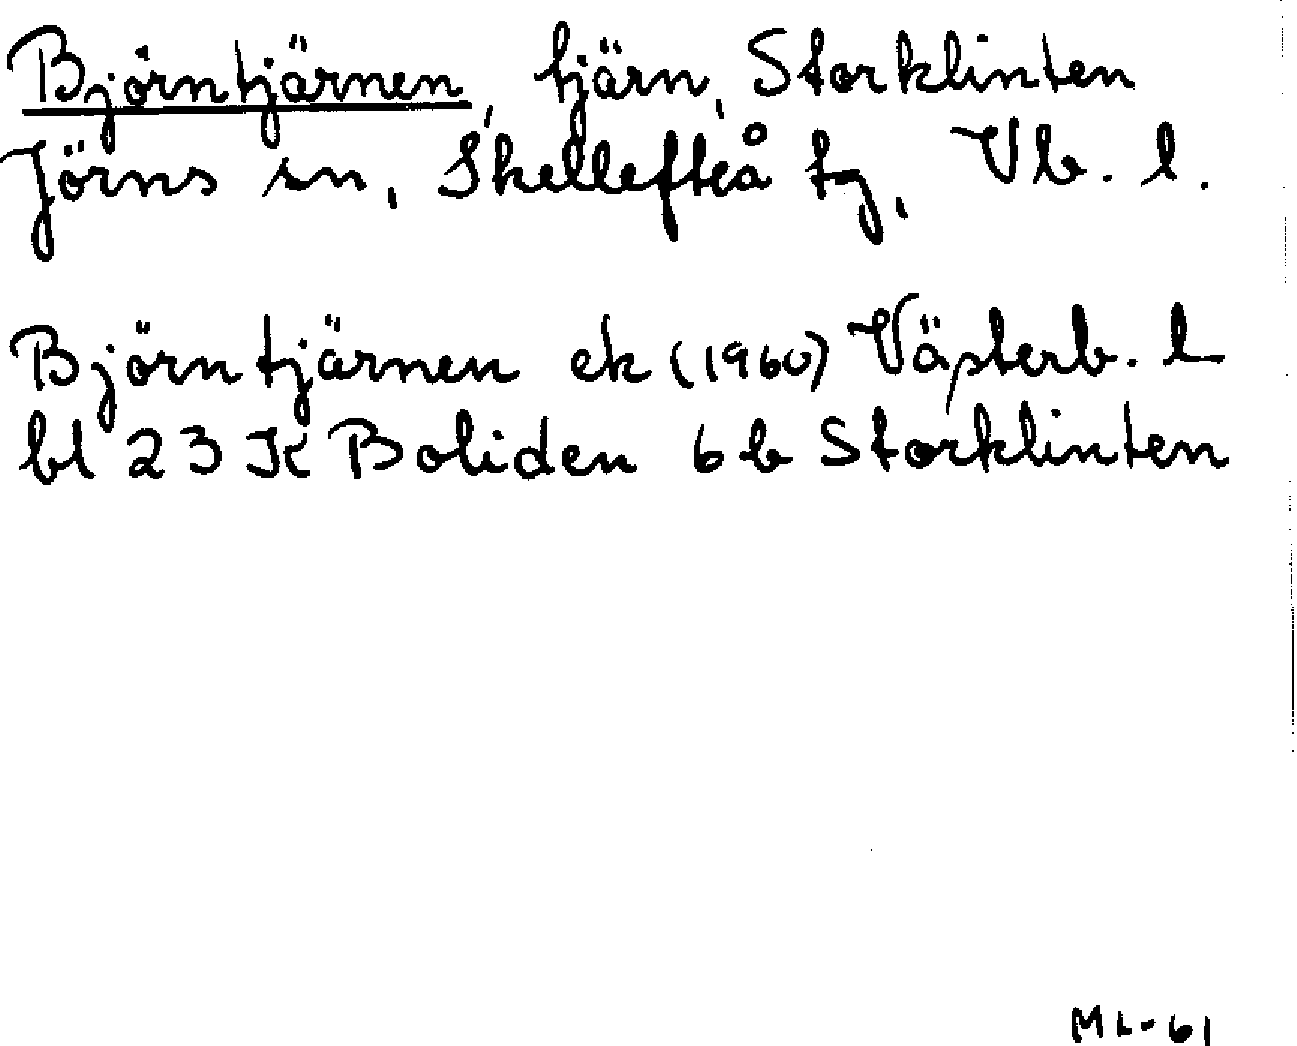 Björntjärnen, tjärn, Storklinten
Jörns sn, Skellefteå tg, Vb. l.
Björntjärnen ek (1960) Västerb. l
bl 23 K Boliden 6 b Storklinten
ML-61